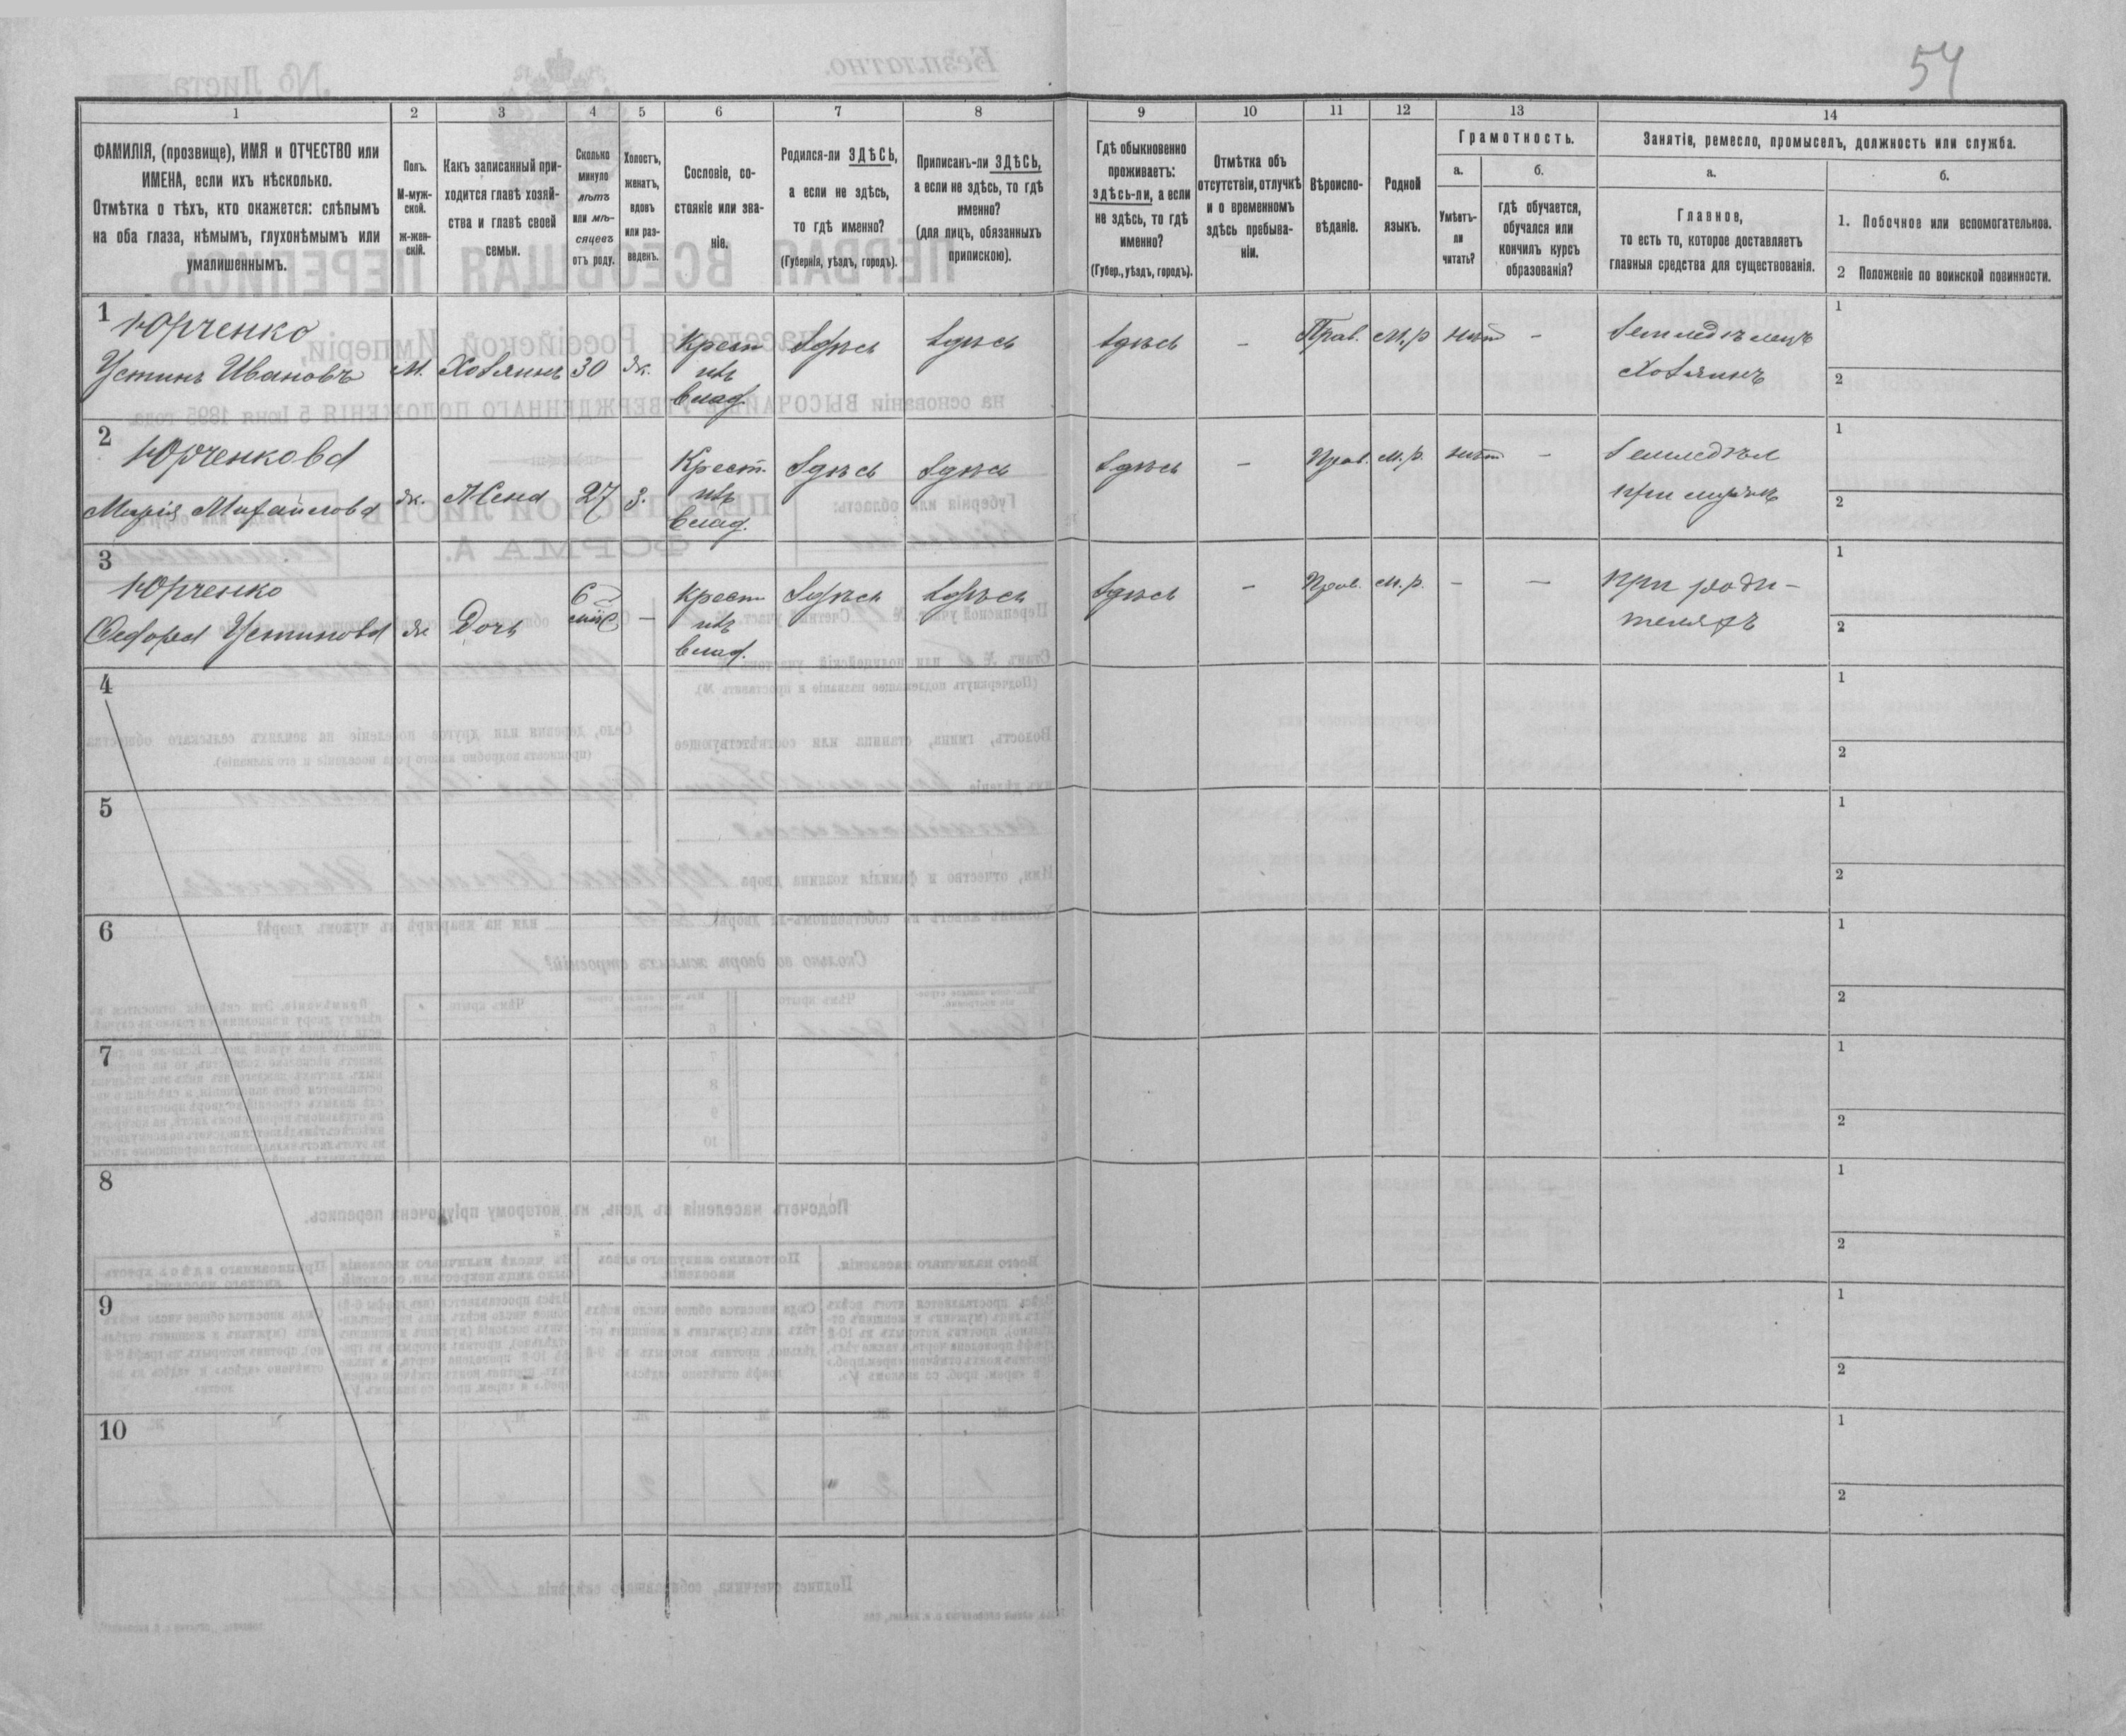 54
1
2
3
4
5
6
7
8
9
10
11
12
13
14
ФАМИЛІЯ, (прозвище), ИМЯ и ОТЧЕСТВО или
ИМЕНА, если ихъ нѣсколько.
Отмѣтка о тѣхъ, кто окажется: слѣпымъ
на оба глаза, нѣмымъ, глухонѣмымъ или
умалишеннымъ.
Полъ.
М-муж-
ской.
ж-жен-
скій.
Какъ записанный при-
ходится главѣ хозяй-
ства и главѣ своей
семьи.
Сколько
минуло
лѣтъ
или мѣ-
сяцевъ
отъ роду.
Холостъ,
женатъ,
вдовъ
или раз-
веденъ.
Сословіе, со-
стояніе или зва-
ніе.
Родился-ли ЗДѢСЬ,
а если не здѣсь,
то гдѣ именно?
(Губернія, уѣздъ, городъ).
Приписанъ-ли ЗДѢСЬ,
а если не здѣсь, то гдѣ
именно?
(для лицъ, обязанныхъ
припискою).
Гдѣ обыкновенно
проживаетъ:
здѣсь-ли, а если
не здѣсь, то гдѣ
именно?
(Губер., уѣздъ, городъ).
Отмѣтка объ
отсутствіи, отлучкѣ
и о временномъ
здѣсь пребыва-
ніи.
Вѣроиспо-
вѣданіе.
Родной
языкъ.
Грамотность.
а.
Умѣетъ-
ли
читать?
б.
гдѣ обучается,
обучался или
кончилъ курсъ
образованія?
Занятіе, ремесло, промыселъ, должность или служба.
а.
Главное,
то есть то, которое доставляетъ
главныя средства для существованія.
б.
1. Побочное или вспомогательное.
2 Положеніе по воинской повинности.
1
Юрченко
Устинъ Ивановъ
М.
Хозяинъ
30
ж.
Крест
изъ
влад.
Здѣсь
Здѣсь
Здѣсь
–
Прав.
м.р
нѣт
–
Земледѣлецъ
Хозяинъ
1
2
2
Юрченкова
Марія Михайлова
ж.
Жена
27
з.
Крест.
изъ
влад.
Здѣсь
Здѣсь
Здѣсь
–
Прав.
м.р.
нѣт
–
Земледѣл
при мужѣ
1
2
3
Юрченко
Ѳедора Устинова
ж
Дочь
6
міс
–
крест
изъ
влад.
Здѣсь
Здѣсь
Здѣсь
–
Прав.
м.р.
–
–
при роди-
теляхъ
1
2
4
1
2
5
1
2
6
1
2
7
1
2
8
1
2
9
1
2
10
1
2